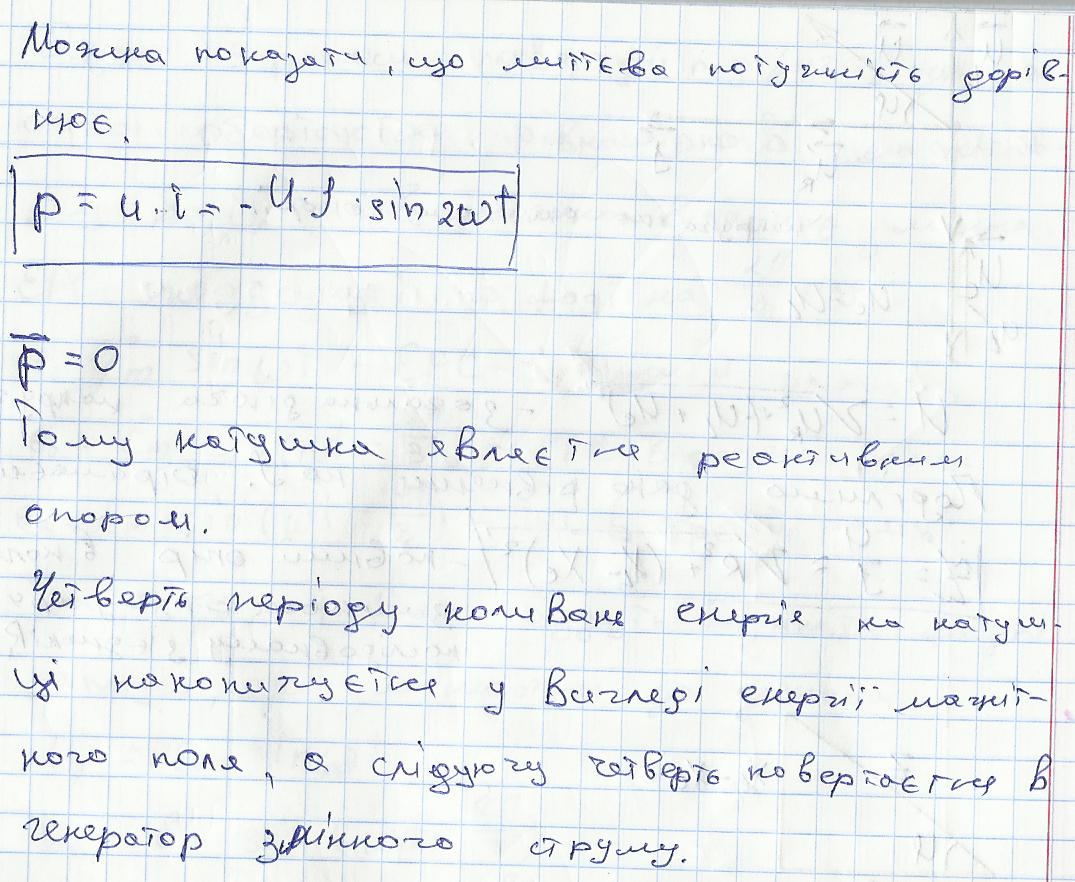 Можна показати, що миттєва потужність дорів-
нює.
p = u · i = - U · I · sin 2ωt
p̅ = 0
Тому катушка являється реактивним
опором.
Четверть періоду коливань енергія на катуш-
ці накопичується у вигляді енергії магніт-
ного поля, а слідуючу четверть повертається в
генератор змінного струму.